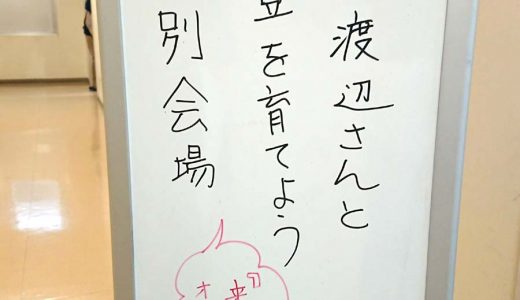 渡辺さんと
豆を育てよう
別会場